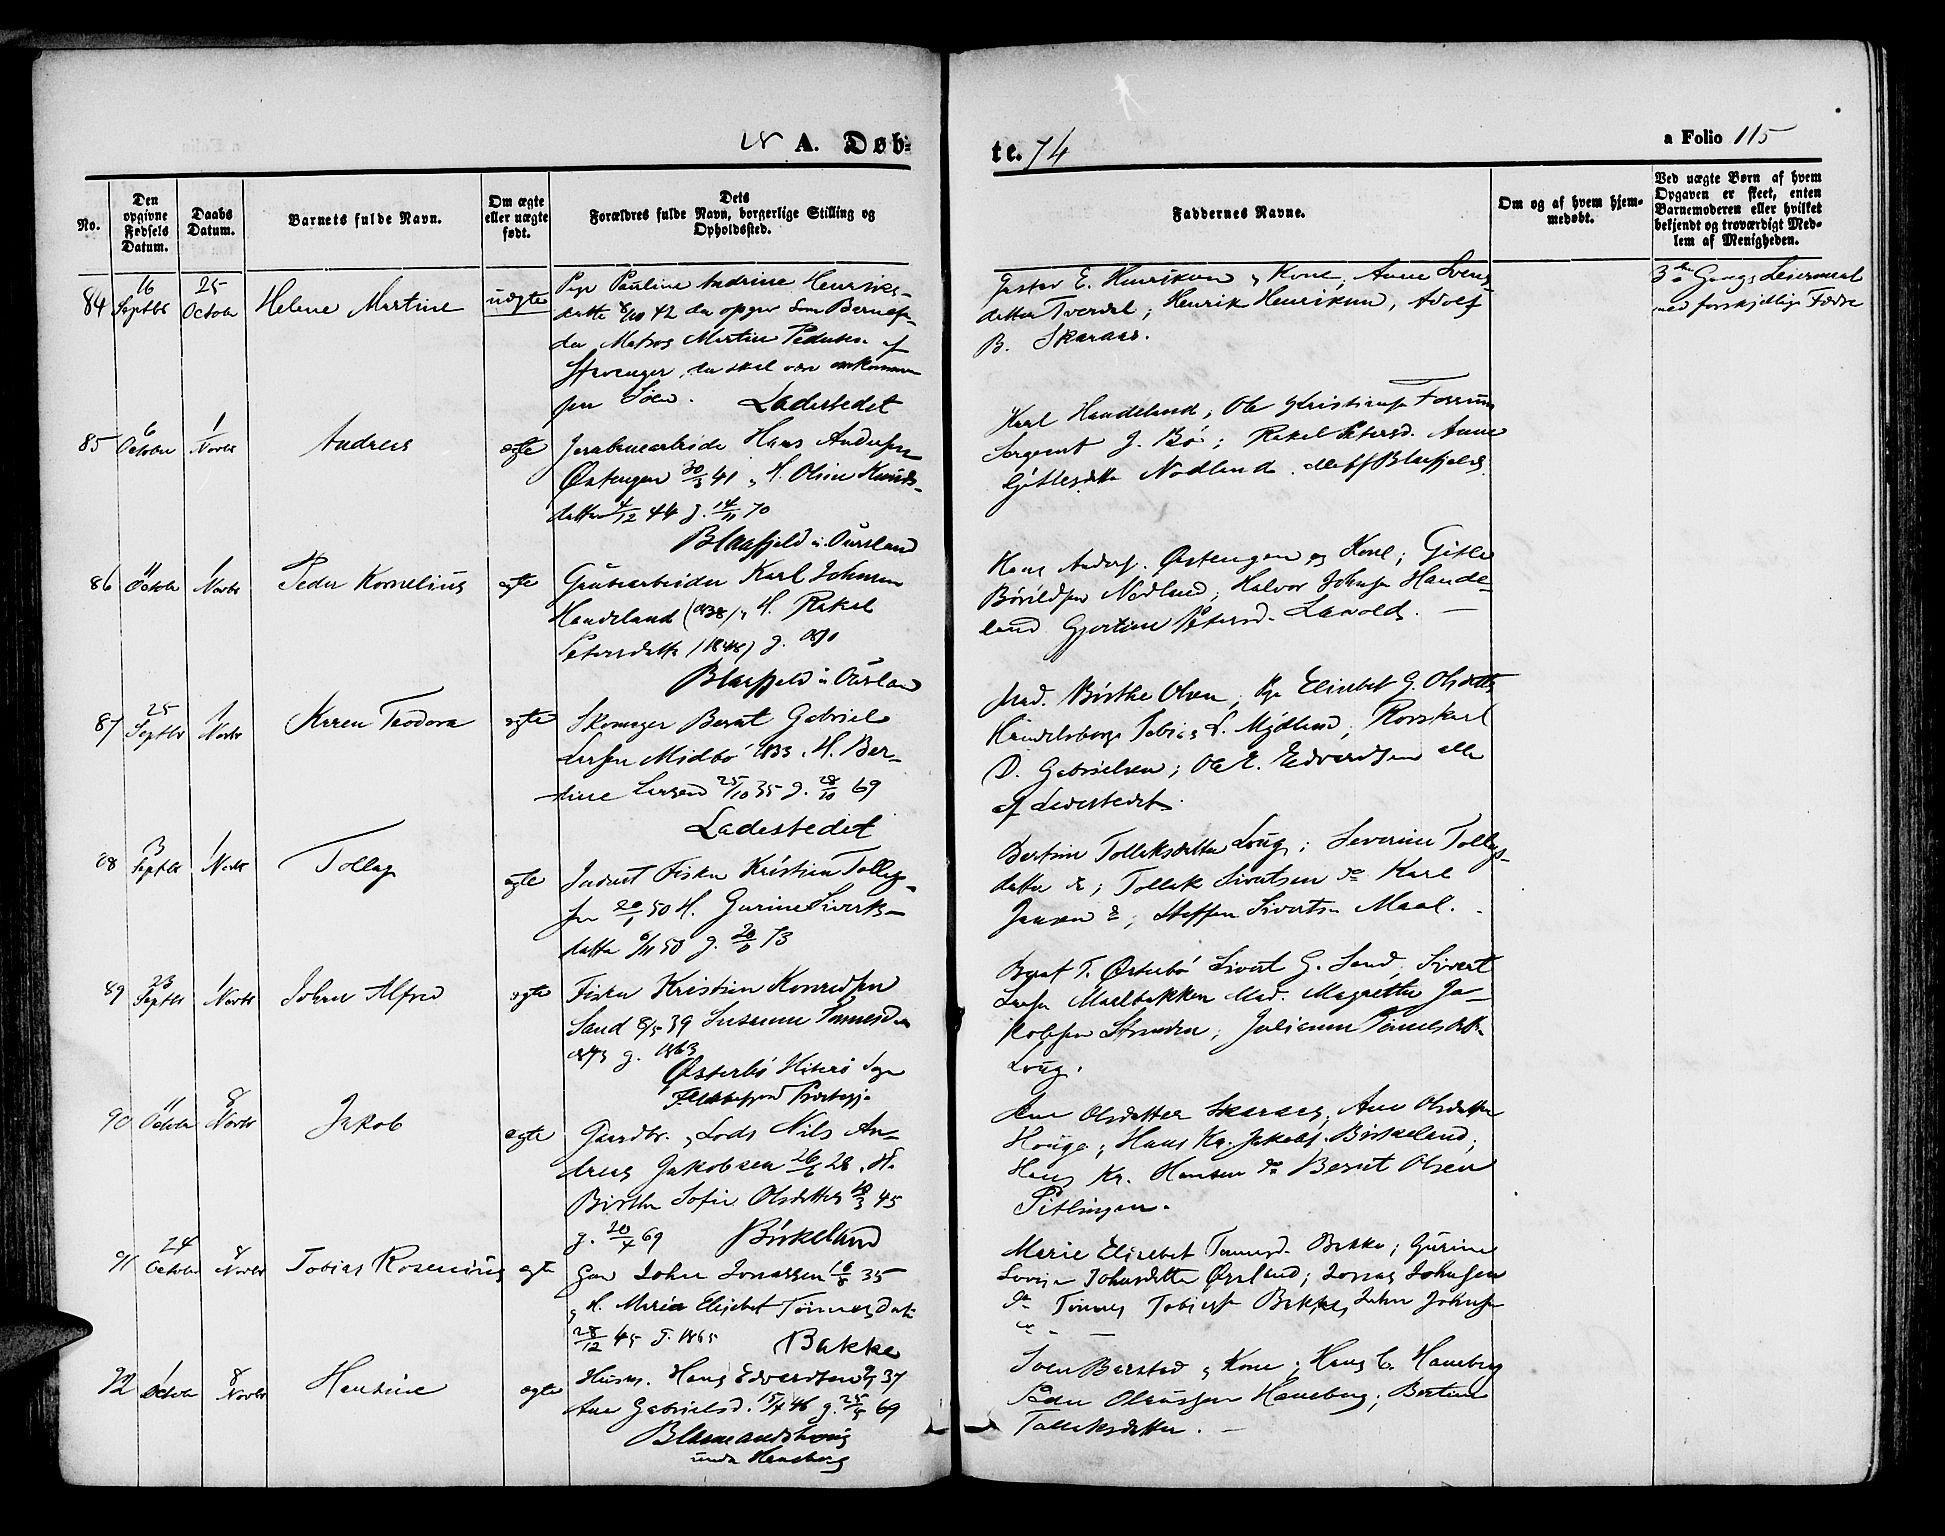 18 A. Døb-
te. 74
a Folio 115
No.
Den opgivne Fødsels Datum.
Daabs Datum.
Barnets fulde Navn.
Om ægte eller uægte født.
Dets Forældres fulde Navn, borgerlige Stilling og Opholdssted.
Faddernes Navne.
Om og af hvem hjem-
medøbt.
Ved uægte Børn af hvem
Opgaven er skeet, enten
Barnemoderen eller hvilket
bekjendt og troværdigt Med-
lem af Menigheden.
84
16 Septbr
25 Octobr
Helene Martine
uægte
Pige Pauline Andrine Henriks-
datter 8/10 42 der opgev som Barnefa-
der Matros Martin Pedersen af
Stavanger, der skal være omkommen
paa Søen. Ladestedet
Gustav E. Henriksen, Kone, Anne Svens
datter Tverdal; Henrik Henriksen, Adolf
B. Skaraas.
3die Gangs Leiermaal
med forskjellige Fædre
85
6 Octobr
1 Novbr
Andreas
ægte
Hans Anders.
Østengen 30/3 41, H. Oline Knuds-
datter 4/12 44 g. 14/11 70
Blaafjeld i Oursland
Karl Handeland; Ole Kristians.
Sergeant J. Bø; Rakel Petersd. Anne
Gitlesdatter Nodland, alle af Blaafjeld
86
11 Octobr
1 Novbr
Peder Kornelius
ægte
Grubearbeider Karl Johnsen
Handeland (1838), H. Rakel
Petersdatter (1848) g. 1870
Blaafjeld i Oursland
Hans Anders. Østengen og Kone; Gitle
Nodland, Halvor Johnsen Hande-
land Gjertine Petersd.
87
25 Septbr
1 Novbr
Karen Teodora
ægte
Skomager Berent Gabriel
Larsen Midbø 1833, H. Ber-
tine Larsen 25/10 35 g. 28/10 69
Ladestedet
Mad. Birthe Olsen, Pige Elisabet G. Olsdatter
Handelsborger Tobias S. Mydland, Rorskarl
D. Gabrielsen; Ole E. Edvardsen alle
af Ladestedet.
88
3 Septbr
1 Novbr
Tollag
ægte
Inderst Fisker Kristian Tollag-
sen 20/1 50 H. Gurine Siverts-
datter 6/11 50 g. 20/11 73
Bertine Tolleksdatter Loug; Severine Tollags-
datter do; Tollak Sivertsen do Karl
Jansen do; Steffen Siverts. Maal.
89
23 Septbr
1 Novbr
John Alfred
ægte
Fisker Kristian Konradsen
Sand 8/5 39 Susanne Tønnesd.
1843 g. 1863
Østerbø Hiterø Sogn
Flekkefjord Præstegj.
T. Østerbø Sivert G. Sand, Sivert
Larsen Maalbakken Mad. Magrethe Ja-
kobsen Stranden, Juliane Tønnesdatter
Loug.
90
11 Octobr
8 Novbr
Jakob
ægte
Gaardbr. Lods Nils An-
dreas Jakobsen 26/6 28, H.
Birthe Sofie Olsdatter 10/3 45
g. 20/4 69 Birkeland
Olsdatter Skaraas, Ane Olsdatter
Houge; Hans Kr. Jakobs. Birkeland;
Hans Kr. Hansen do Berent Olsen
Pitlingen.
91
24 October
8 Novbr
Tobias Rosenius
ægte
Gaar. John Jonassen 16/8 35
, H. Maria Elisabet Tønnesdat.
28/12 45 g. 1865 Bakke
Marie Elisabet Tønnesd. Bakke; Gurine
Lovise Johnsdatter Øysland; Jonas Johnsen
do Tønnes Tobiass. Bakke, John Johnsen
do
92
1 Octobr
8 Novbr
Hansine
ægte
Husm. Hans Edvardsen 37
Ane Gabrielsd. 15/4 46 g. 25/5 69
Blaamandshoug
under Haneberg
Sven Barstad, Kone; Hans C. Haneberg
Peder Olaussen Haneberg; Bertine
Tolleksdatter.